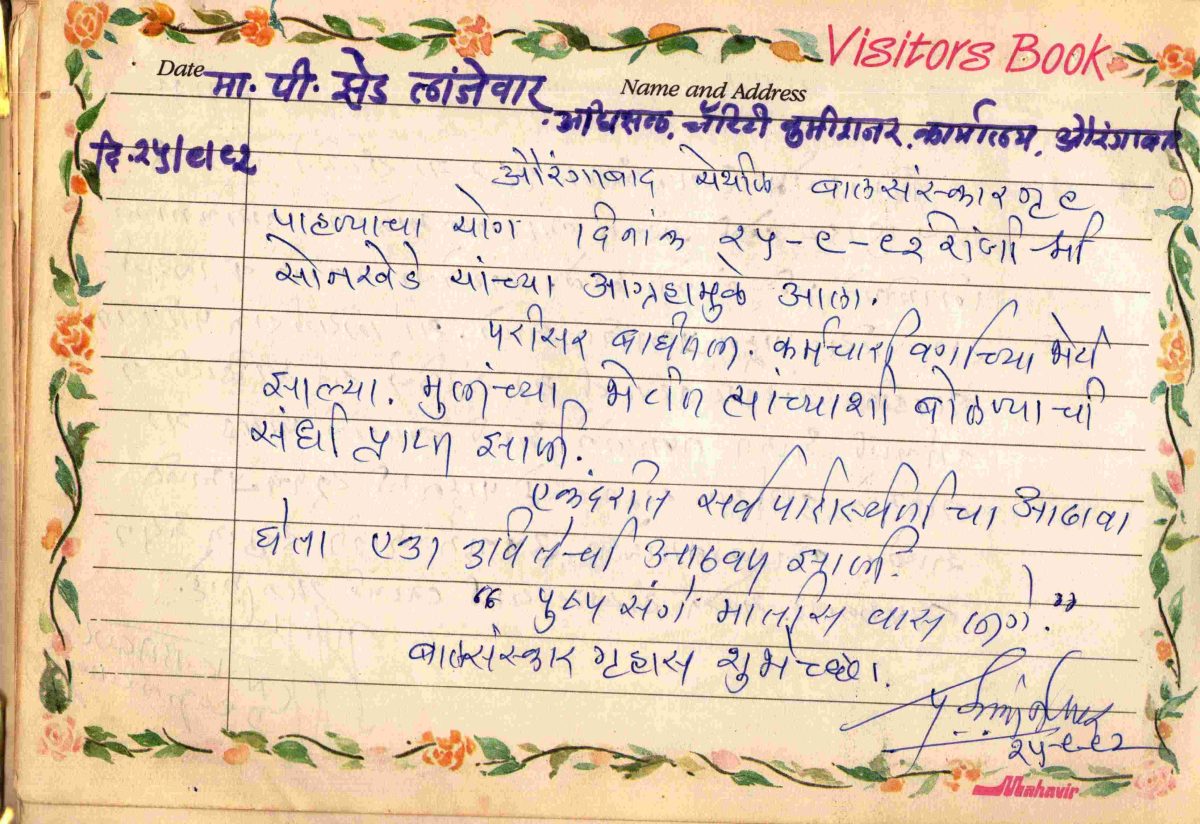 Visitors Book
Date Name and Address
मा. पी. झेड लांजेवार
अधिक्षक, चॅरिटी कमीशनर, कार्यालय, औरंगाबाद
दि. २५/९/९२
औरंगाबाद येथील बालसंस्कार गृह
पाहण्याचा योग दिनांक २५-९-९२ रोजी श्री
सोनखेडे यांच्या आग्रहामुळे आला.
परीसर बघीतला. कर्मचारी वर्गाच्या भेटी
झाल्या. मुलांच्या भेटीत त्यांच्याशी बोलण्याची
संधी प्राप्त झाली.
एकंदरीत सर्व परिस्थितीचा आढावा
घेता एका उक्तिची आठवण झाली.
"पुष्प संगे मातीस वास लागे."
बालसंस्कार गृहास शुभेच्छा.
२५-९-९२
Mahavir